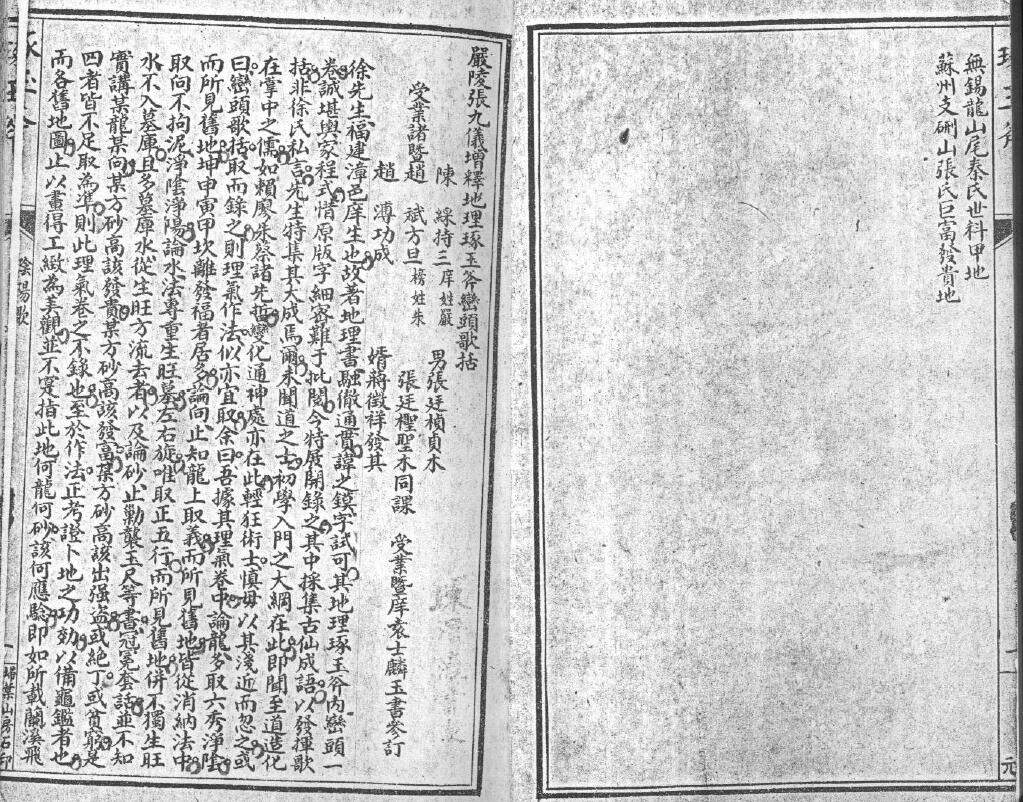 無錫龍山尾秦氏世科甲地
蘇州支硎山張氏巨富發貴地
嚴陵張九儀增釋地理琢玉斧巒頭歌括
陳 綵持三庠姓嚴
男張廷楨貞木
受業諸暨趙 斌方旦榜姓朱
張廷檉聖木同課
受業暨庠袁士麟玉書參訂
趙 漙功成
婿蔣徵祥發其
徐先生福建漳邑庠生也故著地理書融徹通貫諱之鏌字試可其地理琢玉斧內巒頭一
卷誠堪輿家程式惜原版字細密難于批閱今特展開錄之其中採集古仙成語以發揮歌
括非徐氏私言先生特集其大成焉爾未聞道之士初學入門之大綱在此即聞至道造化
在掌中之儒如賴廖朱蔡諸先哲變化通神處亦在此輕狂術士慎毋以其淺近而忽之或
曰巒頭歌括取而錄之則理氣作法似亦宜取余曰吾據其理氣卷中論龍多取六秀淨陰
而所見舊地坤申寅甲坎離發福者居多論向止知龍上取義而所見舊地皆從消納法中
取向不拘泥淨陰淨陽論水法專重生旺墓左右旋唯取正五行而所見舊地併不獨生旺
水不入墓庫且多墓庫水從生旺方流去者以及論砂止勦襲玉尺等書冠冕套話並不知
實講某龍某向某方砂高該發貴某方砂高該發富某方砂高該出强盜或絶丁或貧窮是
四者皆不足取為準則此理氣卷之不錄也至於作法正考證卜地之功効以備龜鑑者也
而各舊地圖止以畫得工緻為美觀並不寔指此地何龍何砂該何應騐即如所載蘭溪飛
陰陽歌
一
埽葉山房石印
元